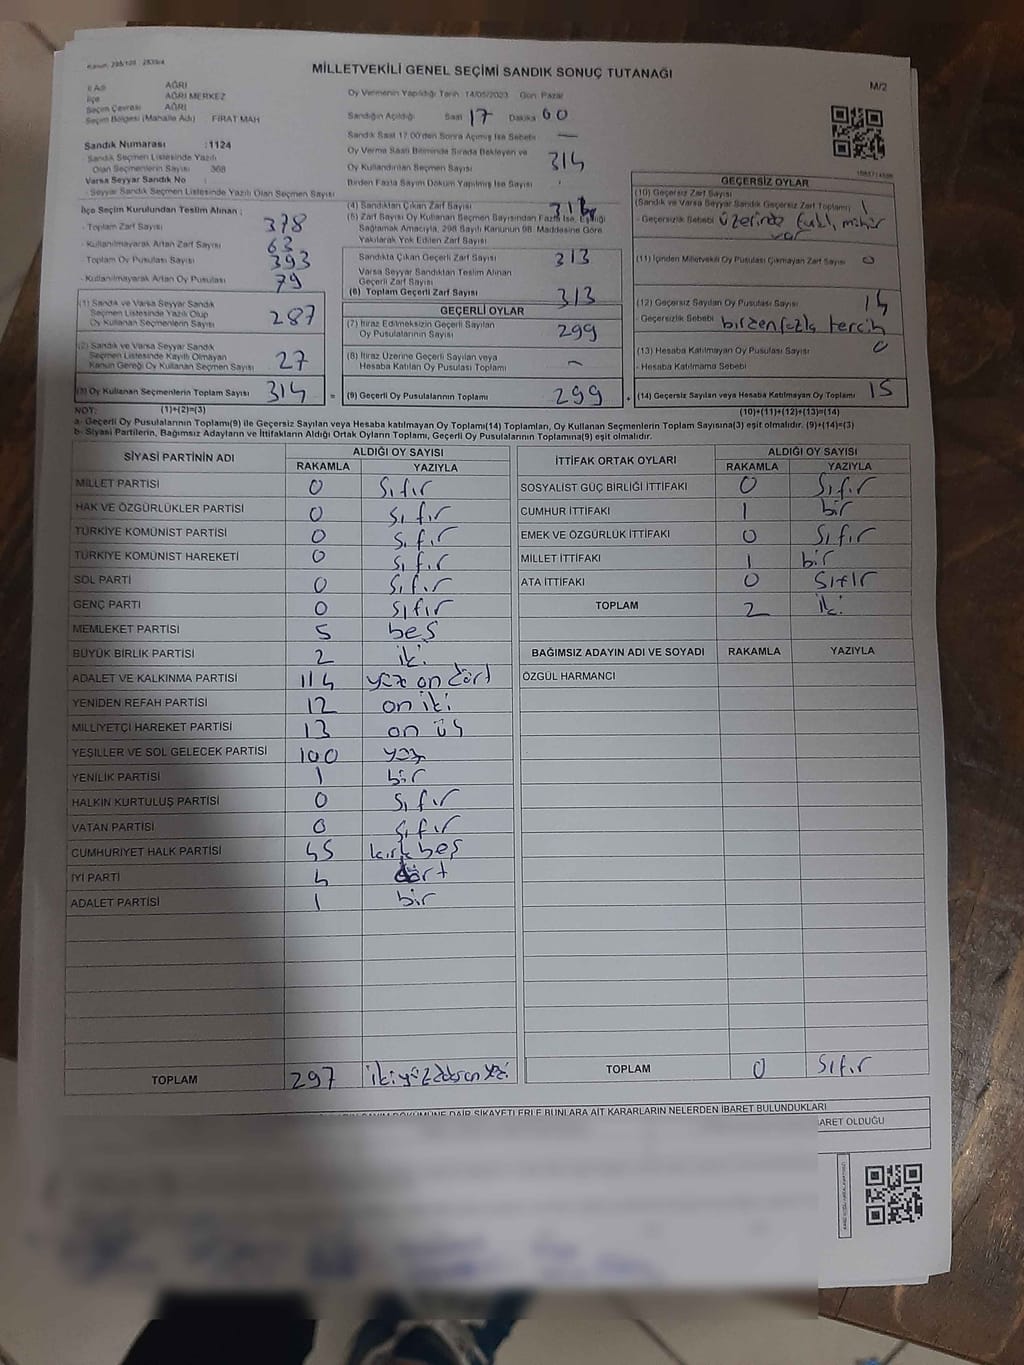 Kanun: 298/105 - 2839/4
MİLLETVEKİLİ GENEL SEÇİMİ SANDIK SONUÇ TUTANAĞI
M/2
İl Adı AĞRI
İlçe AĞRI MERKEZ
Seçim Çevresi AĞRI
Seçim Bölgesi (Mahalle Adı) FIRAT MAH
Sandık Numarası :1124
Sandık Seçmen Listesinde Yazılı
Olan Seçmenlerin Sayısı 368
Varsa Seyyar Sandık No :
Seyyar Sandık Seçmen Listesinde Yazılı Olan Seçmen Sayısı
Oy Vermenin Yapıldığı Tarih: 14/05/2023 Gün: Pazar
Sandığın Açıldığı Saat 17 Dakika 00
Sandık Saat 17:00'den Sonra Açılmış İse Sebebi —
Oy Verme Saati Bitiminde Sırada Bekleyen ve
Oy Kullandırılan Seçmen Sayısı 314
Birden Fazla Sayım Döküm Yapılmış İse Sayısı
İlçe Seçim Kurulundan Teslim Alınan :
- Toplam Zarf Sayısı 378
- Kullanılmayarak Artan Zarf Sayısı 63
Toplam Oy Pusulası Sayısı 393
- Kullanılmayarak Artan Oy Pusulası 79
(1) Sandık ve Varsa Seyyar Sandık
Seçmen Listesinde Yazılı Olup
Oy Kullanan Seçmenlerin Sayısı 287
(2) Sandık ve Varsa Seyyar Sandık
Seçmen Listesinde Kayıtlı Olmayan
Kanun Gereği Oy Kullanan Seçmen Sayısı 27
(3) Oy Kullanan Seçmenlerin Toplam Sayısı 314 =
(4) Sandıktan Çıkan Zarf Sayısı
(5) Zarf Sayısı Oy Kullanan Seçmen Sayısından Fazla İse, Eşitliği
Sağlamak Amacıyla, 298 Sayılı Kanunun 98. Maddesine Göre
Yakılarak Yok Edilen Zarf Sayısı
Sandıkta Çıkan Geçerli Zarf Sayısı 313
Varsa Seyyar Sandıktan Teslim Alınan
Geçerli Zarf Sayısı
(6) Toplam Geçerli Zarf Sayısı 313
GEÇERLİ OYLAR
(7) İtiraz Edilmeksizin Geçerli Sayılan
Oy Pusulalarının Sayısı 299
(8) İtiraz Üzerine Geçerli Sayılan veya
Hesaba Katılan Oy Pusulası Toplamı —
(9) Geçerli Oy Pusulalarının Toplamı 299 +
GEÇERSİZ OYLAR
(10) Geçersiz Zarf Sayısı
(Sandık ve Varsa Seyyar Sandık Geçersiz Zarf Toplamı) 1
- Geçersizlik Sebebi üzerinde mühür
var
(11) İçinden Milletvekili Oy Pusulası Çıkmayan Zarf Sayısı 0
(12) Geçersiz Sayılan Oy Pusulası Sayısı 14
- Geçersizlik Sebebi birden fazla tercih
(13) Hesaba Katılmayan Oy Pusulası Sayısı 0
- Hesaba Katılmama Sebebi
(14) Geçersiz Sayılan veya Hesaba Katılmayan Oy Toplamı 15
NOT: (1)+(2)=(3) (10)+(11)+(12)+(13)=(14)
a- Geçerli Oy Pusulalarının Toplamı(9) ile Geçersiz Sayılan veya Hesaba katılmayan Oy Toplamı(14) Toplamları, Oy Kullanan Seçmenlerin Toplam Sayısına(3) eşit olmalıdır. (9)+(14)=(3)
b- Siyasi Partilerin, Bağımsız Adayların ve İttifakların Aldığı Ortak Oyların Toplamı, Geçerli Oy Pusulalarının Toplamına(9) eşit olmalıdır.
SİYASİ PARTİNİN ADI ALDIĞI OY SAYISI
RAKAMLA YAZIYLA
MİLLET PARTİSİ 0 sıfır
HAK VE ÖZGÜRLÜKLER PARTİSİ 0 sıfır
TÜRKİYE KOMÜNİST PARTİSİ 0 sıfır
TÜRKİYE KOMÜNİST HAREKETİ 0 sıfır
SOL PARTİ 0 sıfır
GENÇ PARTİ 0 sıfır
MEMLEKET PARTİSİ 5 beş
BÜYÜK BİRLİK PARTİSİ 2 iki
ADALET VE KALKINMA PARTİSİ 114 yüz on dört
YENİDEN REFAH PARTİSİ 12 on iki
MİLLİYETÇİ HAREKET PARTİSİ 13 on üç
YEŞİLLER VE SOL GELECEK PARTİSİ 100 yüz
YENİLİK PARTİSİ 1 bir
HALKIN KURTULUŞ PARTİSİ 0 sıfır
VATAN PARTİSİ 0 sıfır
CUMHURİYET HALK PARTİSİ 45 kırk beş
İYİ PARTİ 4 dört
ADALET PARTİSİ 1 bir
TOPLAM 297
İTTİFAK ORTAK OYLARI ALDIĞI OY SAYISI
RAKAMLA YAZIYLA
SOSYALİST GÜÇ BİRLİĞİ İTTİFAKI 0 sıfır
CUMHUR İTTİFAKI 1 bir
EMEK VE ÖZGÜRLÜK İTTİFAKI 0 sıfır
MİLLET İTTİFAKI 1 bir
ATA İTTİFAKI 0 sıfır
TOPLAM 2 iki
BAĞIMSIZ ADAYIN ADI VE SOYADI RAKAMLA YAZIYLA
ÖZGÜL HARMANCI
TOPLAM 0 sıfır
SAYIM DÖKÜMÜNE DAİR ŞİKAYETLERLE BUNLARA AİT KARARLARIN NELERDEN İBARET BULUNDUKLARI
ARET OLDUĞU